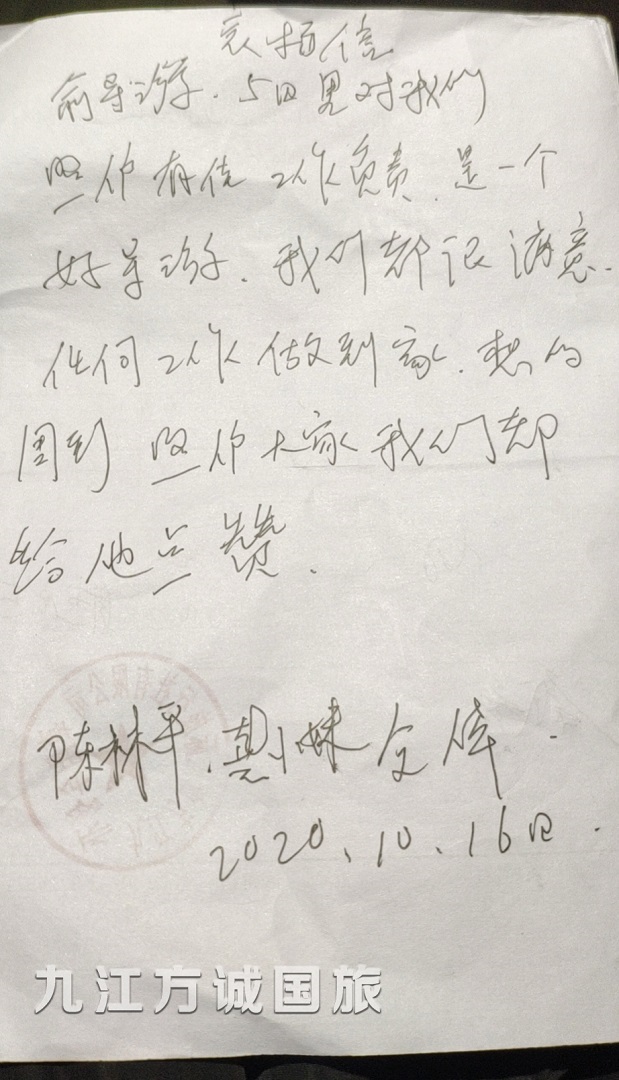 表扬信
俞导游.5日里对我们
照你有佳工作负责.是一个
好导游.我们都很满意.
任何工作做到家.想的
周到照你大家我们都
给他点赞.
陈林平.
2020、10、16日.
九江方诚国旅